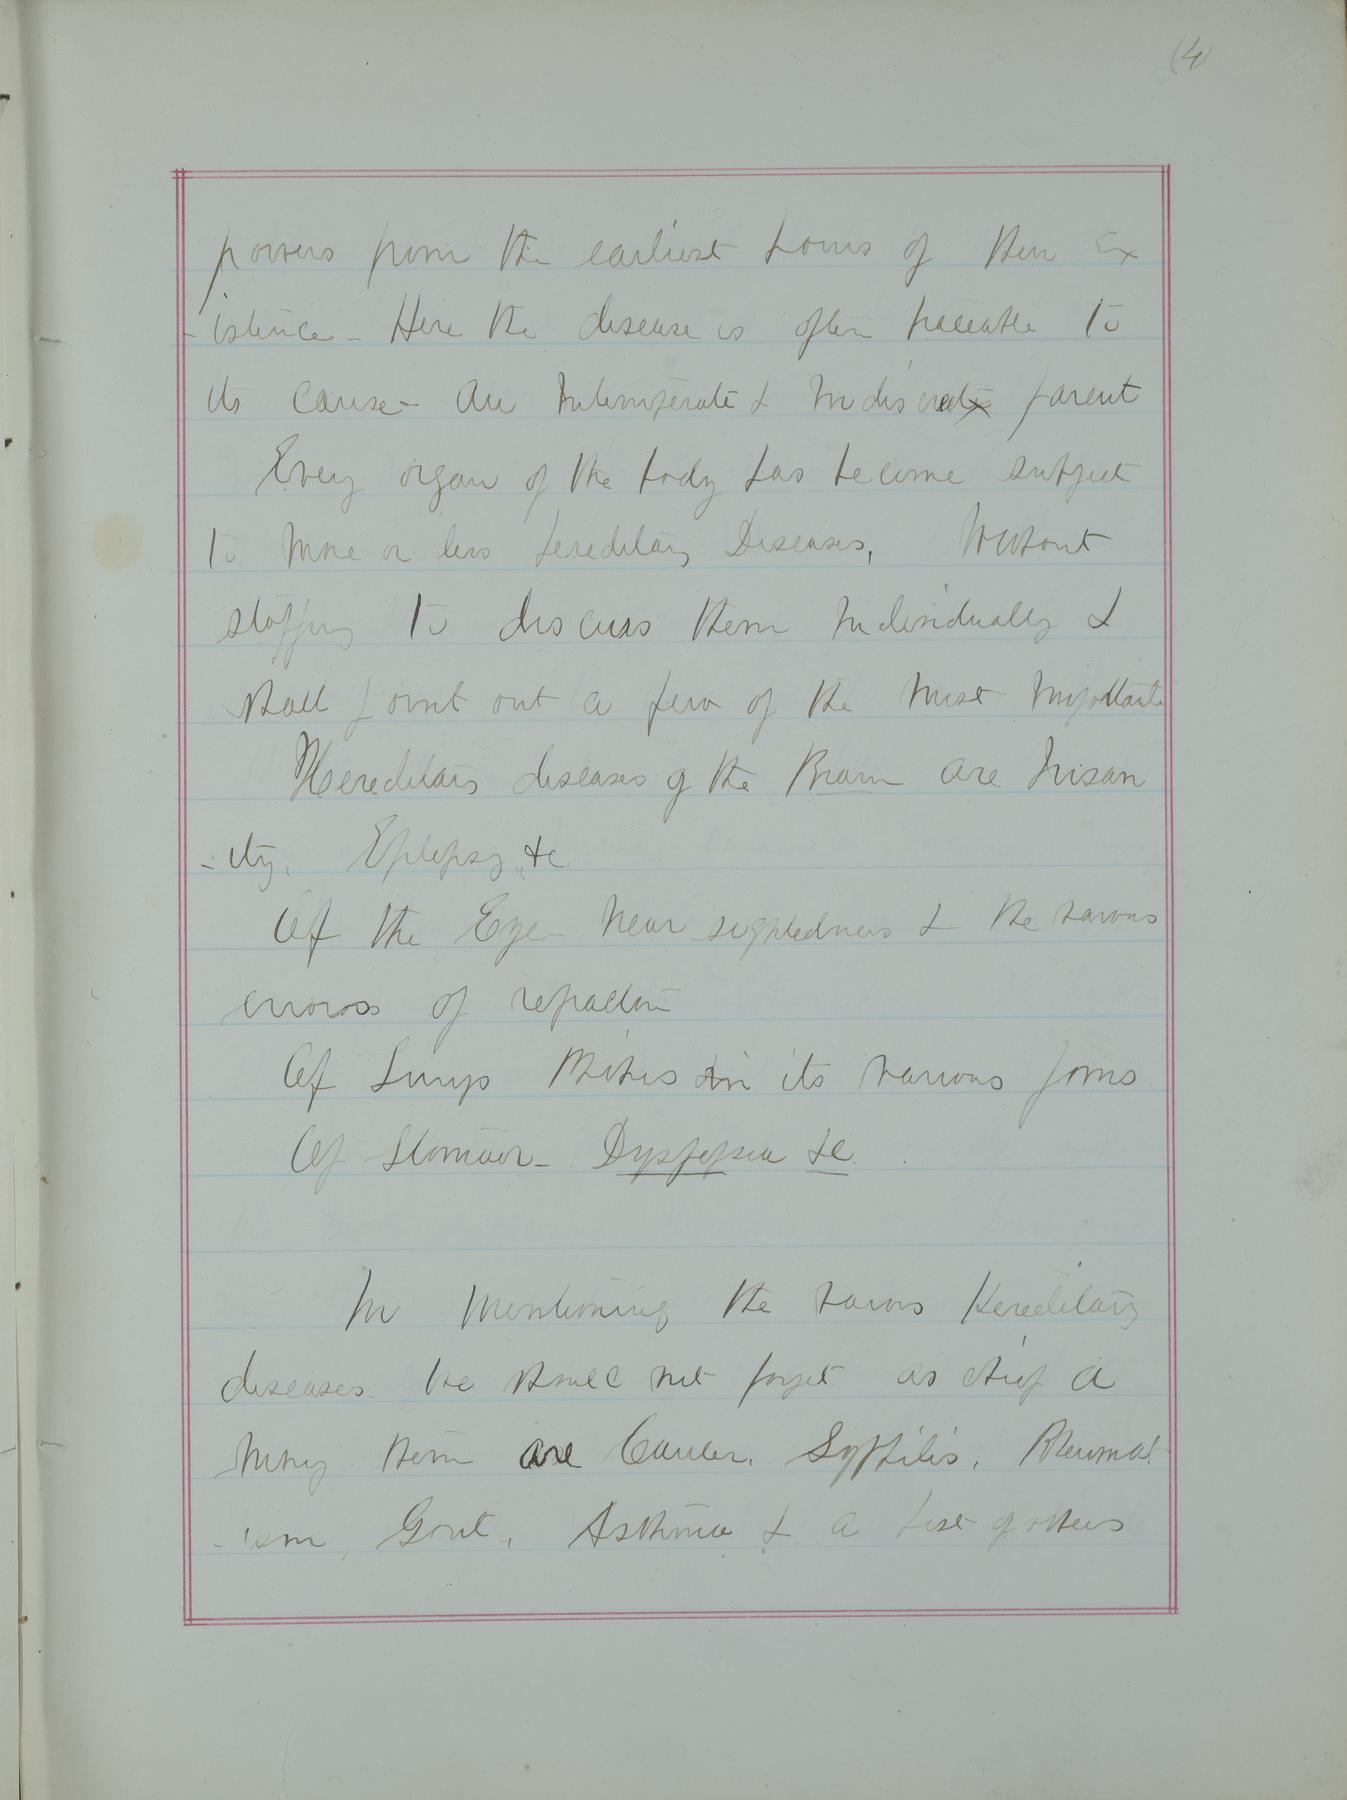 (4)
powers from the earliest hours of their Ex
-istence - Here the disease is often traceable to
its cause - An Intemperate & Indiscrete parent
Every organ of the body has become subject
to more or less hereditary Diseases, Without
stopping to discuss them Individually I
shall point out a few of the most Important
Hereditary diseases of the Brain are Insan
-ity, Epilepsy, &c
Of the Eye - Near sightedness & the various
errors of refraction
Of Lungs Phthisis in its various forms
Of Stomach - Dyspepsia &c.
In mentioning the various Hereditary
diseases we shall not forget as chief a
mong them are Cancer, Syphilis, Rheumat
-ism, Gout, Asthma & a host of others